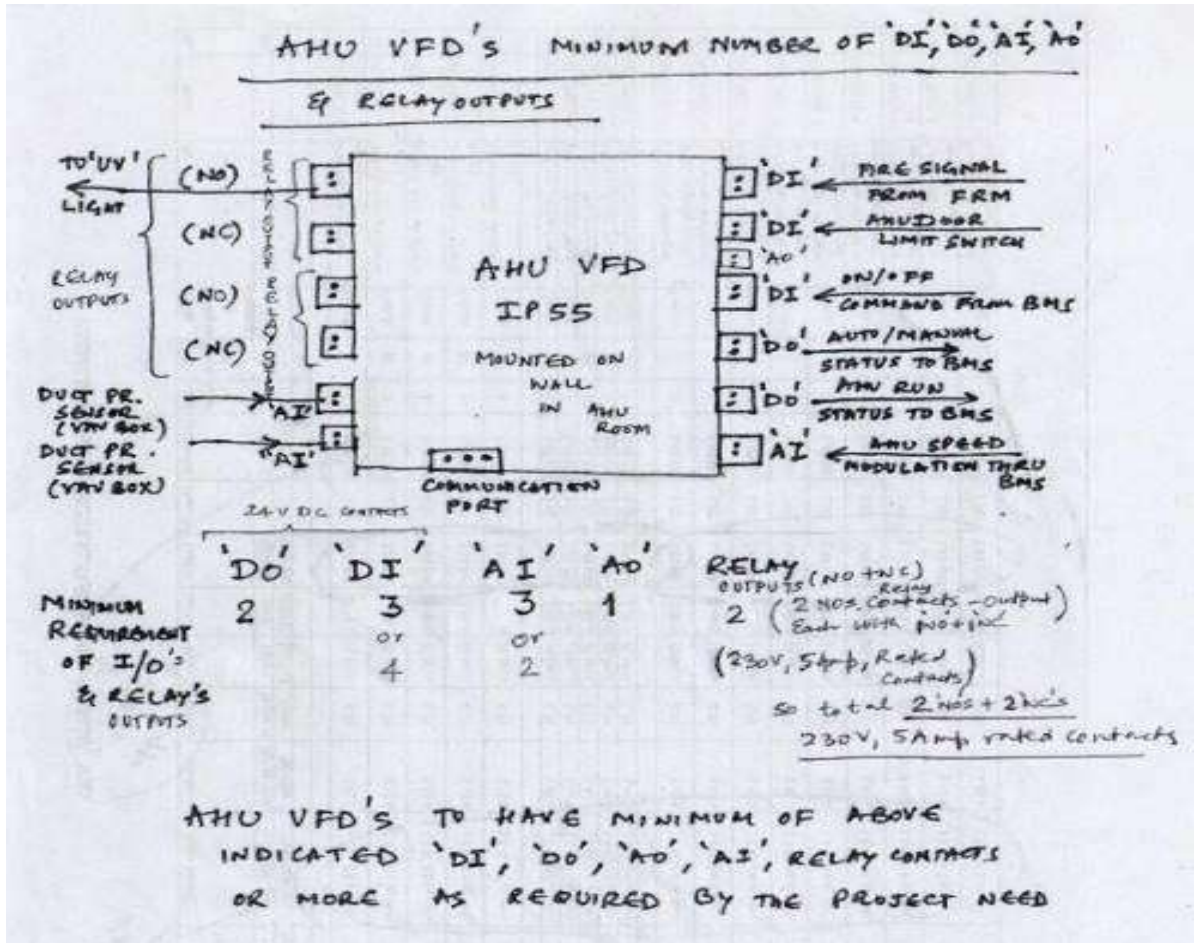 AHU VFD's MINIMUM NUMBER OF 'DI', 'DO', 'AI', 'AO'
& RELAY OUTPUTS
TO 'UV'
LIGHT
(NO)
(NC)
RELAY
OUTPUTS
(NO)
(NC)
DUCT PR.
SENSOR
(VAV BOX)
'AI'
DUCT PR.
SENSOR
(VAV BOX)
'AI'
AHU VFD
IP55
MOUNTED ON
WALL
IN AHU
ROOM
COMMUNICATION
PORT
'DI' FIRE SIGNAL
FROM FRM
'DI' AHU DOOR
LIMIT SWITCH
'AO'
'DI' ON/OFF
COMMAND FROM BMS
'DO' AUTO/MANUAL
STATUS TO BMS
'DO' AHU RUN
STATUS TO BMS
'AI' AHU SPEED
MODULATION THRU
BMS
24V DC CONTACTS
'DO' 'DI' 'AI' 'AO' RELAY
OUTPUTS (NO + NC)
MINIMUM
REQUIREMENT
OF I/O's
& RELAY'S
OUTPUTS
2 3 3 1 2
or or
4 2
(2 Nos. Contacts - Relay output
Each with NO + NC)
(230V, 5Amp, Rated
Contacts)
so total 2 NOs + 2 NC's
230V, 5Amp rated contacts
AHU VFD'S TO HAVE MINIMUM OF ABOVE
INDICATED 'DI', 'DO', 'AO', 'AI', RELAY CONTACTS
OR MORE AS REQUIRED BY THE PROJECT NEED